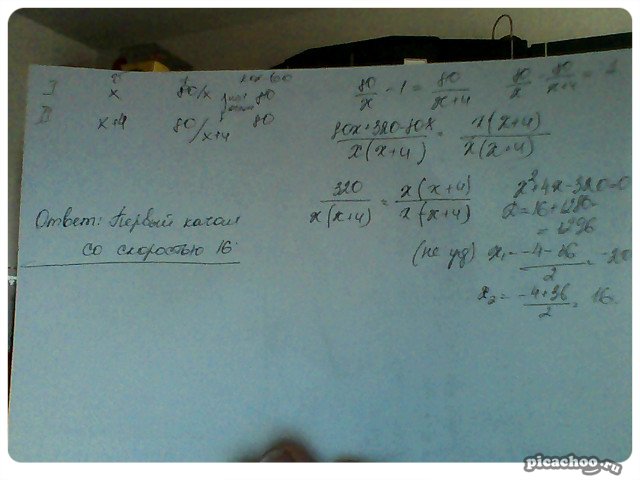 I v x t 80/x 80
II x+4 80/x+4 80
80/x - 1 = 80/x+4 80/x - 80/x+4 = 1
80x+320-80x/x(x+4) = x(x+4)/x(x+4)
320/x(x+4) = x(x+4)/x(x+4)
x²+4x-320=0
= 1296
(не уд) x₁ = -4-36/2 = -20
x₂ = -4+36/2 = 16
Ответ: Первый
со скоростью 16.
picachoo.ru